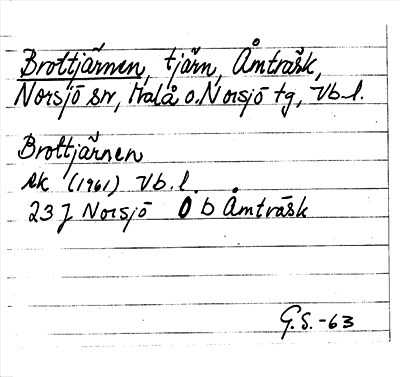 Brottjärnen, tjärn, Åmträsk,
Norsjö sn, Malå o. Norsjö tg, Vb. l.
Brottjärnen
ek (1961) Vb. l.
23 J Norsjö 0 b Åmträsk
G.S. -63